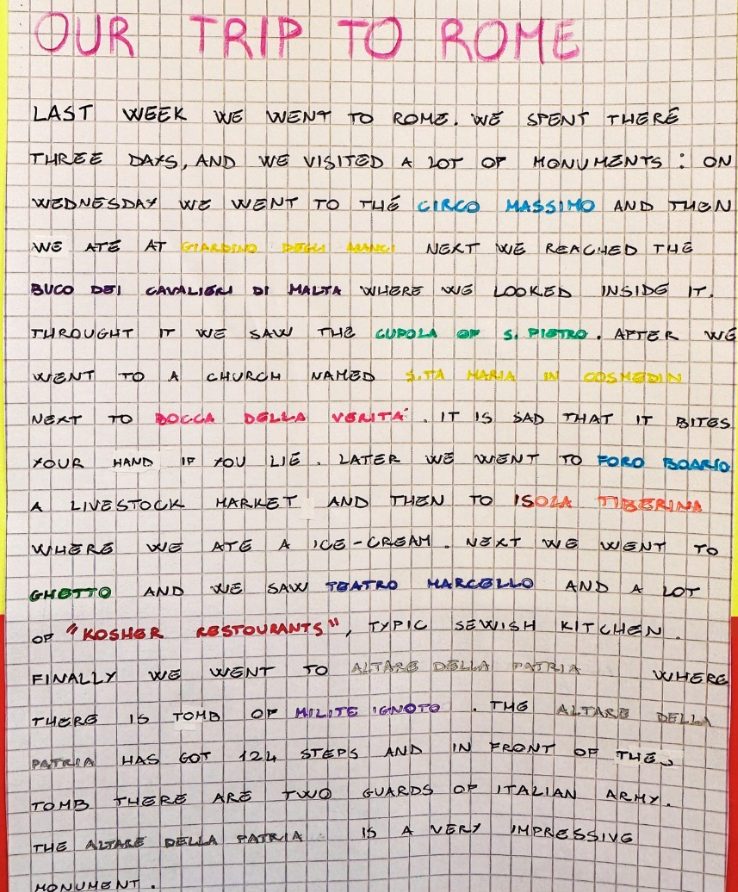 OUR TRIP TO ROME
LAST WEEK WE WENT TO ROME. WE SPENT THERE
THREE DAYS, AND WE VISITED A LOT OF MONUMENTS : ON
WEDNESDAY WE WENT TO THE CIRCO MASSIMO AND THEN
WE ATE AT GIARDINO DEGLI ARANCI NEXT WE REACHED THE
BUCO DEI CAVALIERI DI MALTA WHERE WE LOOKED INSIDE IT.
THROUGHT IT WE SAW THE CUPOLA OF S. PIETRO. AFTER WE
WENT TO A CHURCH NAMED S.TA MARIA IN COSMEDIN
NEXT TO BOCCA DELLA VERITA'. IT IS SAD THAT IT BITES
YOUR HAND IF YOU LIE. LATER WE WENT TO FORO BOARIO
A LIVESTOCK MARKET AND THEN TO ISOLA TIBERINA
WHERE WE ATE A ICE-CREAM. NEXT WE WENT TO
GHETTO AND WE SAW TEATRO MARCELLO AND A LOT
OF "KOSHER RESTOURANTS", TYPIC SEWISH KITCHEN.
FINALLY WE WENT TO ALTARE DELLA PATRIA WHERE
THERE IS TOMB OF MILITE IGNOTO. THE ALTARE DELLA
PATRIA HAS GOT 124 STEPS AND IN FRONT OF THE
TOMB THERE ARE TWO GUARDS OF ITALIAN ARMY.
THE ALTARE DELLA PATRIA IS A VERY IMPRESSIVE
MONUMENT.